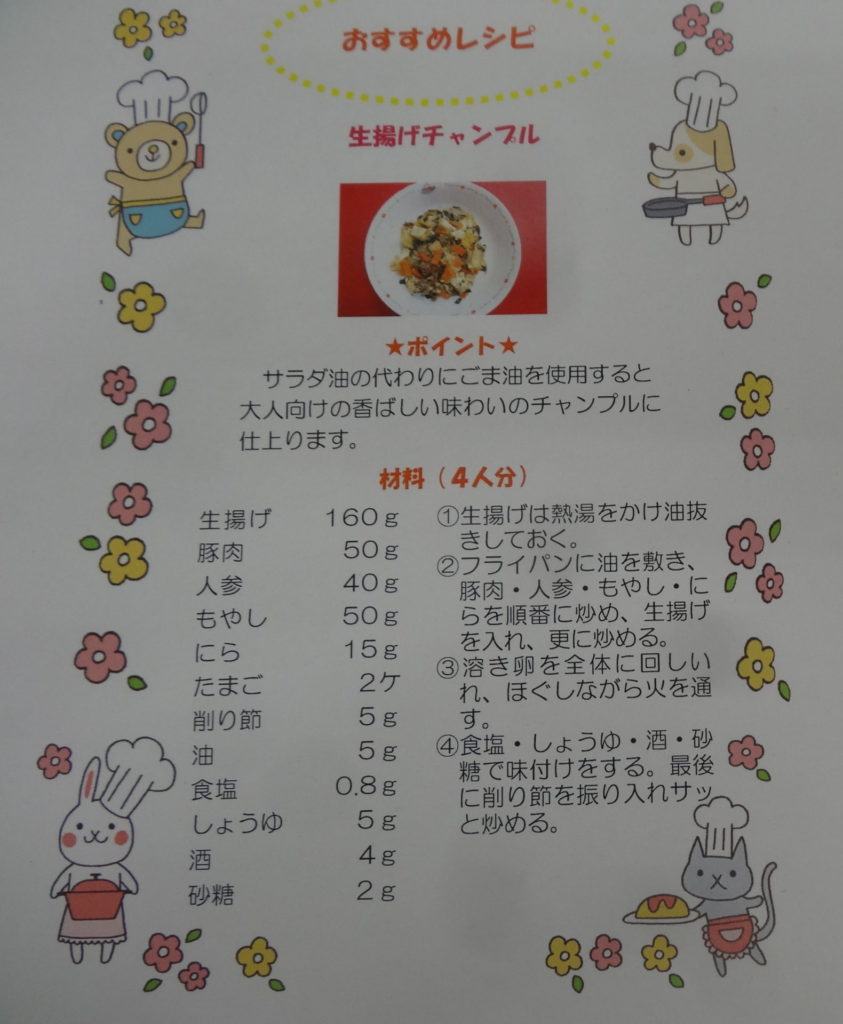 おすすめレシピ
生揚げチャンプル
★ポイント★
サラダ油の代わりにごま油を使用すると
大人向けの香ばしい味わいのチャンプルに
仕上ります。
材料（４人分）
生揚げ １６０ｇ
豚肉 ５０ｇ
人参 ４０ｇ
もやし ５０ｇ
にら １５ｇ
たまご ２ケ
削り節 ５ｇ
油 ５ｇ
食塩 ０.８ｇ
しょうゆ ５ｇ
酒 ４ｇ
砂糖 ２ｇ
①生揚げは熱湯をかけ油抜
きしておく。
②フライパンに油を敷き、
豚肉・人参・もやし・に
らを順番に炒め、生揚げ
を入れ、更に炒める。
③溶き卵を全体に回しい
れ、ほぐしながら火を通
す。
④食塩・しょうゆ・酒・砂
糖で味付けをする。最後
に削り節を振り入れサッ
と炒める。